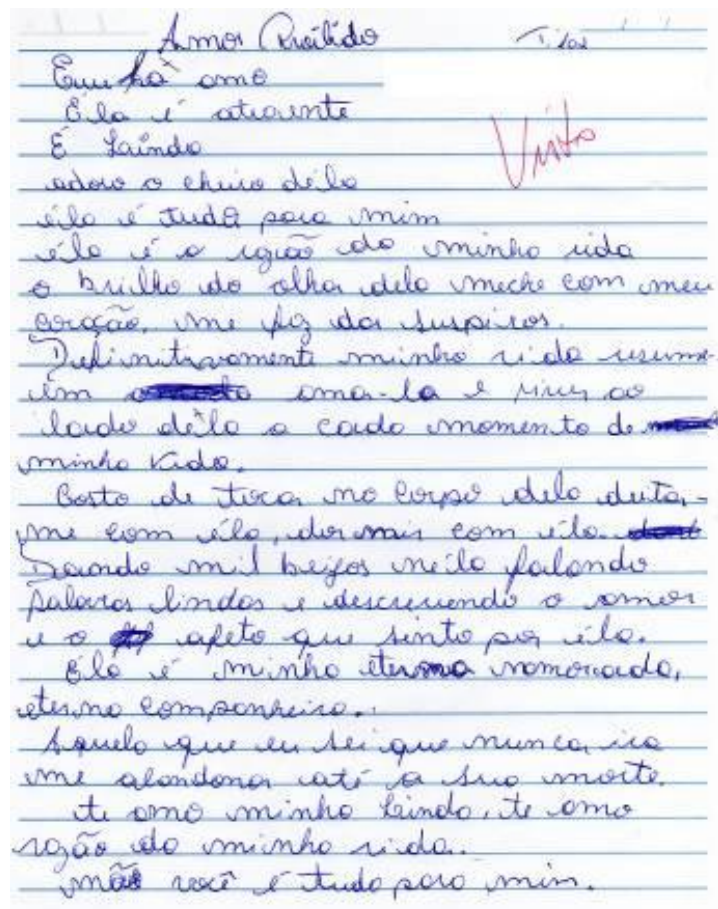 Amor Proibido
Eu há amo
Ela é atraente
É Lainda
adoro o cheiro déla
éla é tuda para mim
éla é a razão da minha vida
o brilho do olhar dela meche com meu
coração, me faz dar suspiros.
Difinitivamente minha vida resume-
em ama-la e viver ao
lado déla a cada momento de
minha vida.
Gosto de tocar no corpo dela deitar-
me com éla, dormir com éla.
Dando mil beijos néla falando
palavras lindas e descrevendo o amor
e o afeto que sinto por éla.
Ela é minha eterna namorada,
eterna companheira.
Aquela que eu sei que nunca irá
me abandonar até a sua morte.
te amo minha linda, te amo
razão da minha vida.
mãe você é tudo para mim.
Visto